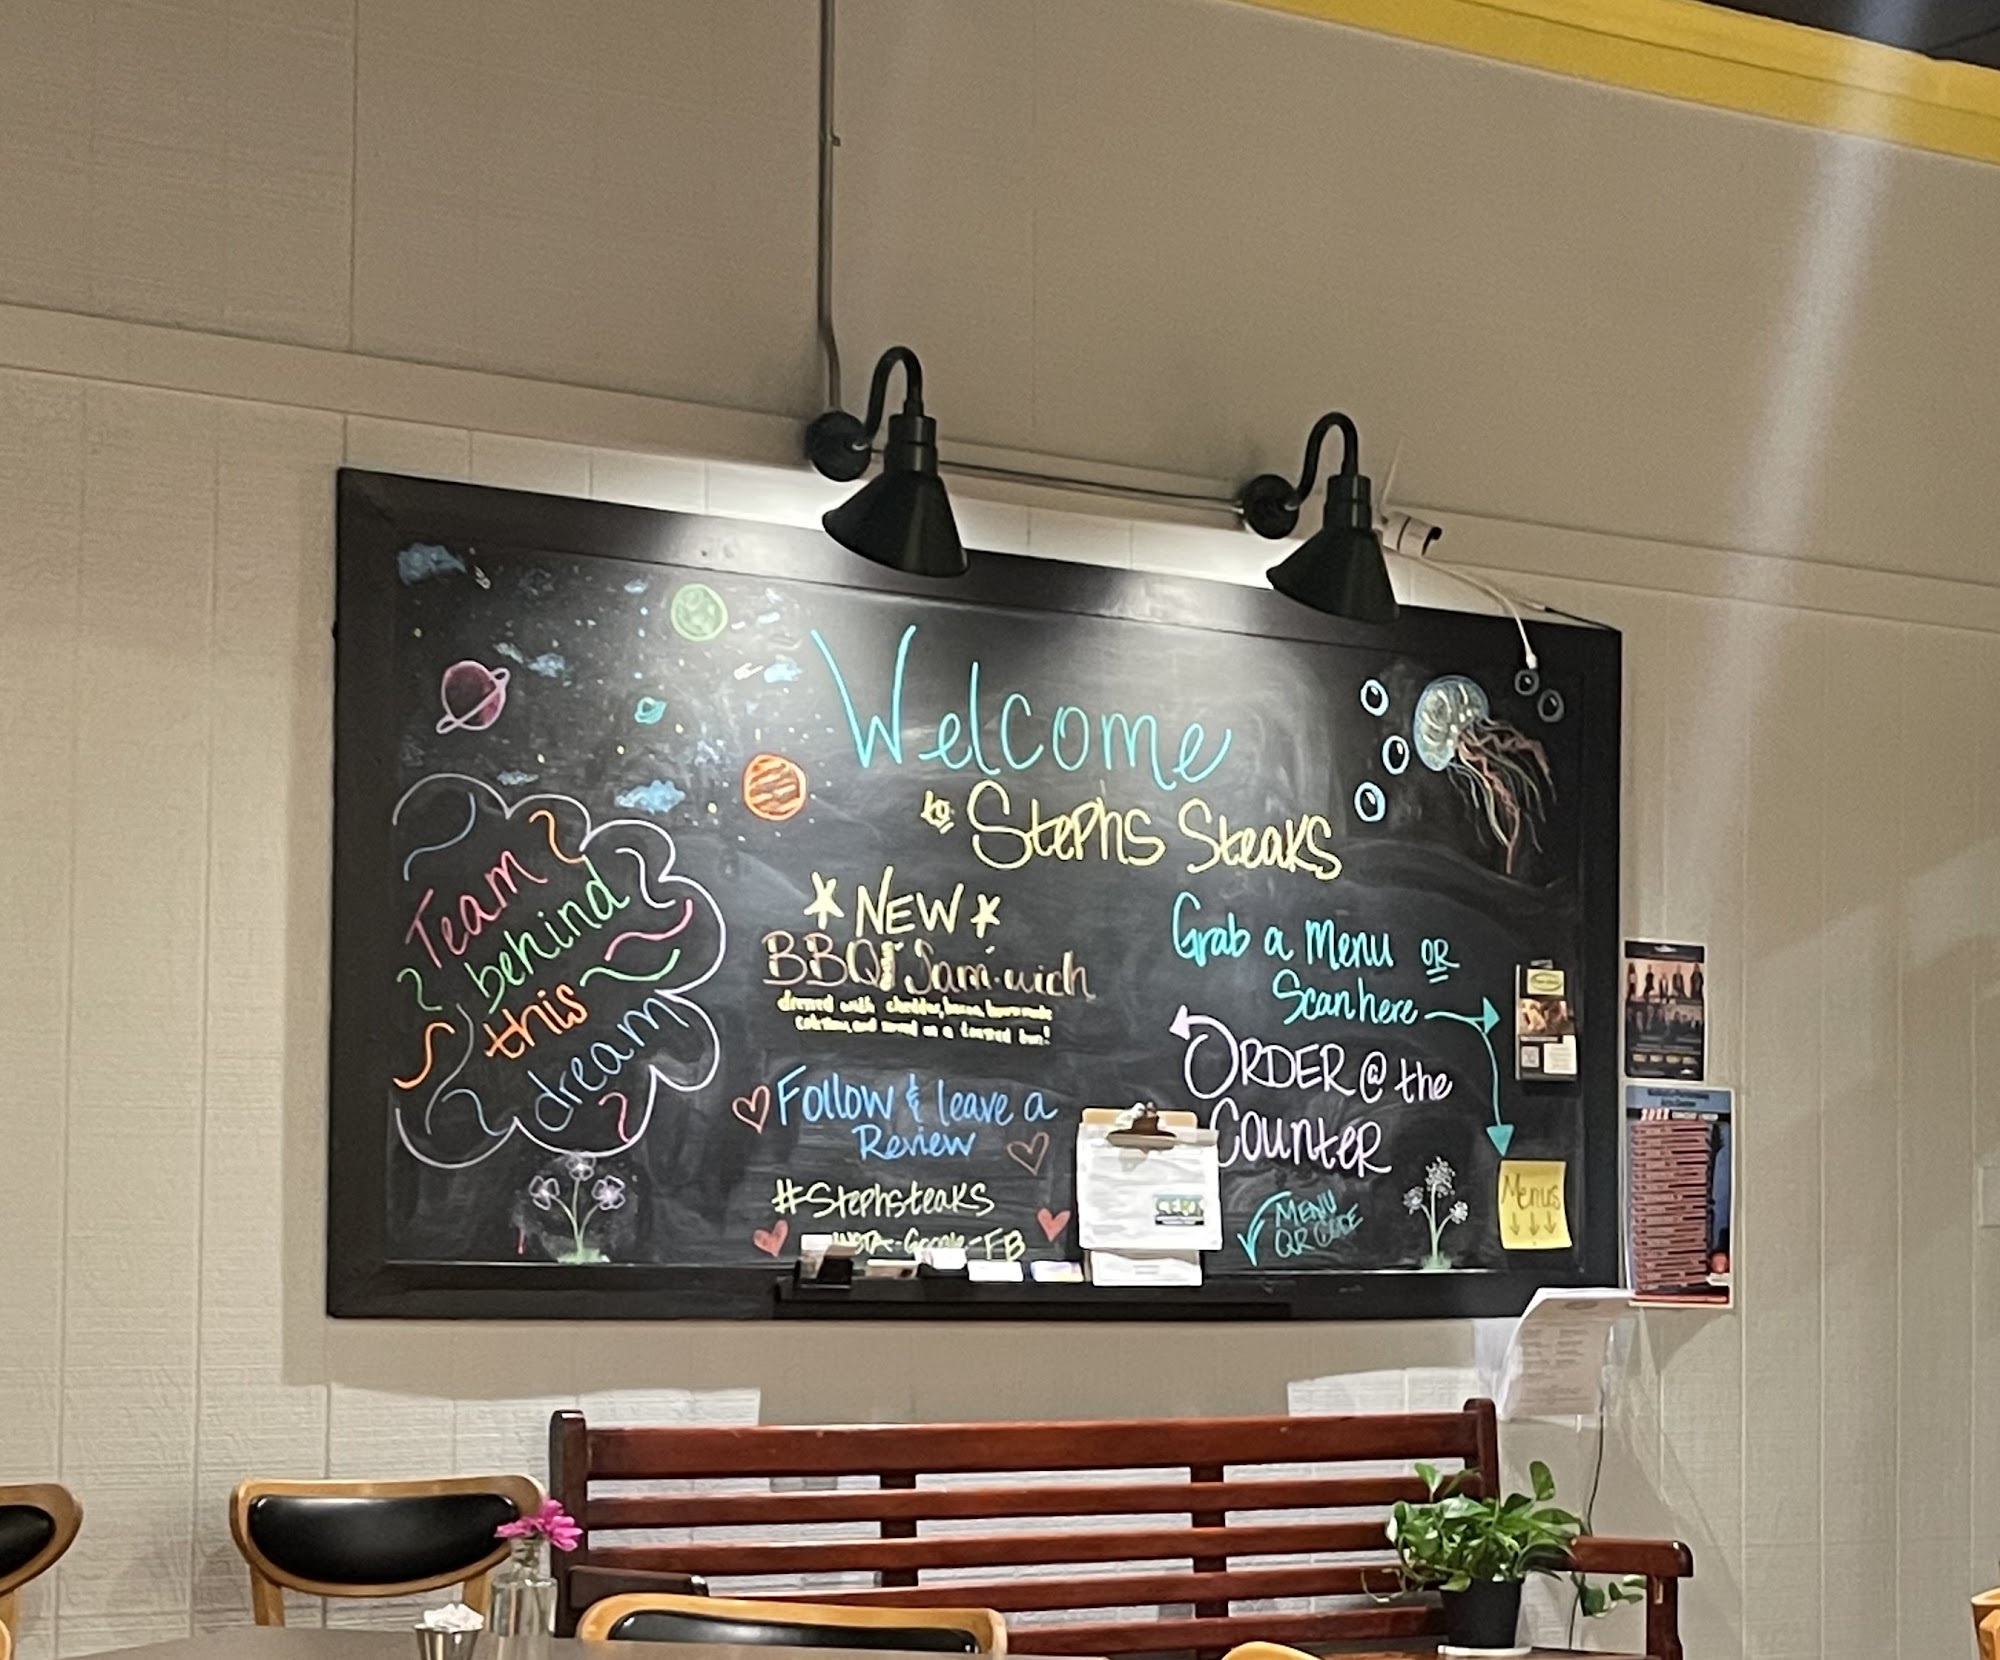 Welcome
to Stephs Steaks
Team
behind
this
dream
NEW
BBQ Sam-wich
dressed with cheddar, bacon, homemade
coleslaw, and served on a toasted bun!
Follow & leave a
Review
#Stephsteaks
INSTA-Google-FB
Grab a Menu OR
Scan here
ORDER @ the
Counter
MENU
QR CODE
Menus